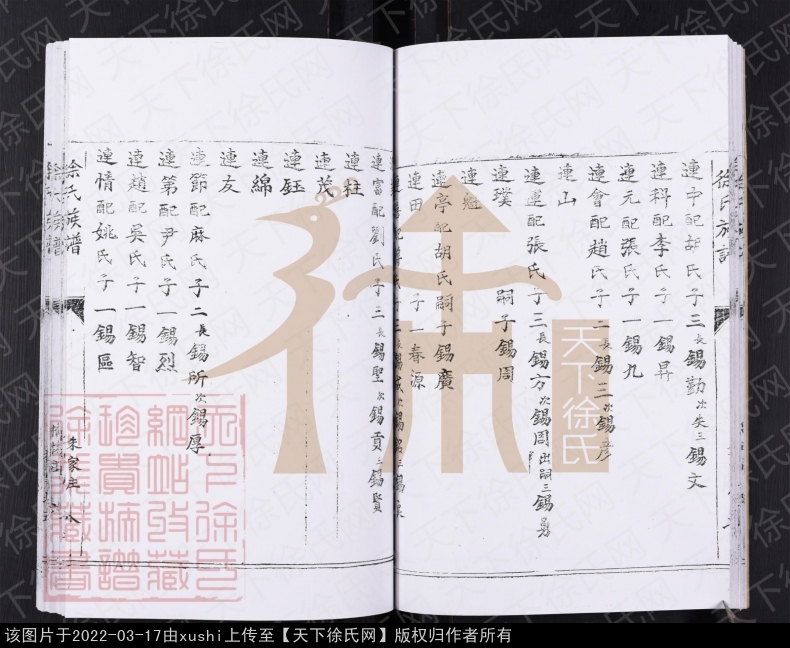 徐氏族譜
連中配胡氏子三長錫勤次失三錫文
連科配李氏子一錫昇
連元配張氏子一錫九
連會配趙氏子二長錫三次錫彦
連山
連建配張氏子三長錫方次錫周出嗣三錫勇
連璞 嗣子錫周
連魁
連亭配胡氏嗣子錫廣
連田 子一春源
連富配劉氏子三長錫聖次錫貢三錫賢
連柱
連茂
連鈺
連綿
連友
連節配麻氏子二長錫所次錫厚
連第配尹氏子一錫烈
連趙配吳氏子一錫智
連情配姚氏子一錫區
徐氏族譜
朱家庄
天下徐氏
天下徐氏网
该图片于2022-03-17由xushi上传至【天下徐氏网】版权归作者所有